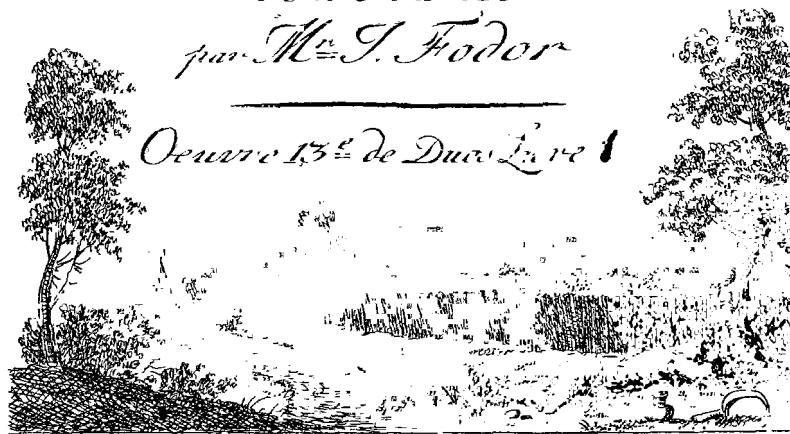 par Mr. J. Fodor
Oeuvre 13e de Duos Livre 1